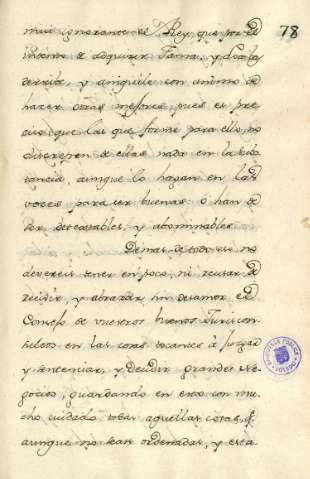 78
mui ignorante es el Rey que por el
intento de adquirir Fama, y Loa la
derriba, y aniquile con animo de
hazer otras mejores pues es pre
ciso que las que forme para ello no
discrepen de ellas nada en la sus
tancia, aunque lo hagan en las
vozes para ser buenas o han de
ser detestables, y abominables
Demas de todo esto no
devereis tener en poco, ni reusar de
recivir, y abrazar sin desamor el
Consejo de vuestros buenos Juriscon
sultos en las cosas tocantes à Juzgar
y sentenciar, y Decidir grandes ne
gocios, guardando en esto con mu
cho cuidado todas aquellas cosas, q.
aunque no sean ordenadas, y esta